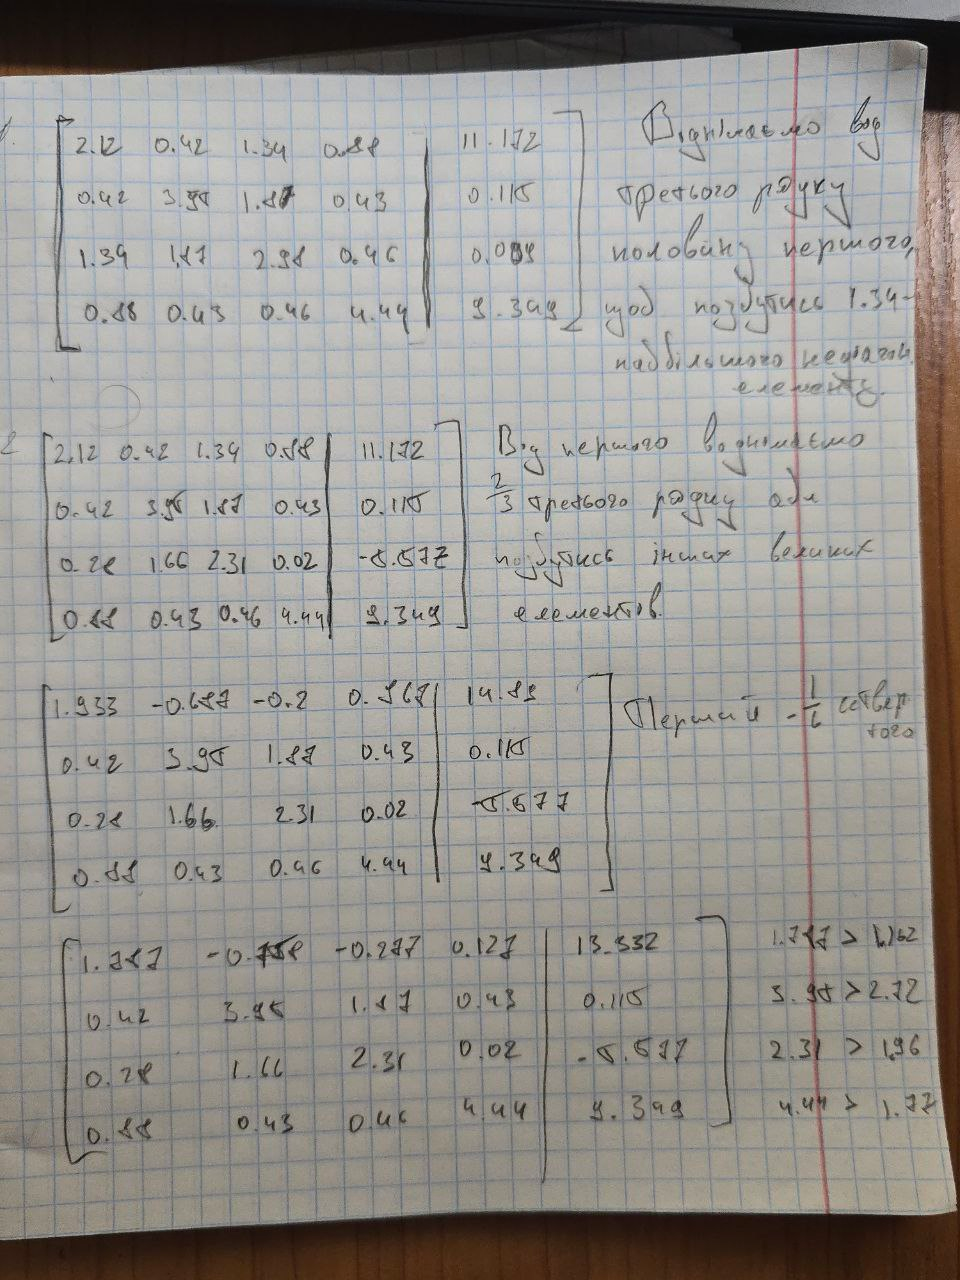 1.
2.12 0.42 1.34 0.88 11.172
0.42 3.95 1.87 0.43 0.115
1.34 1.87 2.98 0.46 0.009
0.88 0.43 0.46 4.44 9.349
Віднімаємо від
третього рядку
половину першого,
щоб позбутись 1.34-
найбільшого недіагон.
елементу.
2
2.12 0.42 1.34 0.88 11.172
0.42 3.95 1.87 0.43 0.115
0.28 1.66 2.31 0.02 -5.577
0.88 0.43 0.46 4.44 9.349
Від першого віднімаємо
2/3 третього рядку аби
позбутись інших великих
елементів.
1.933 -0.687 -0.2 0.867 14.89
0.42 3.95 1.87 0.43 0.115
0.28 1.66 2.31 0.02 -5.577
0.88 0.43 0.46 4.44 9.349
Перший - 1/6 четвер
того
1.787 -0.758 -0.277 0.127 13.332
0.42 3.95 1.87 0.43 0.115
0.28 1.66 2.31 0.02 -5.577
0.88 0.43 0.46 4.44 9.349
1.787 > 1,162
3.95 > 2.72
2.31 > 1,96
4.44 > 1.77